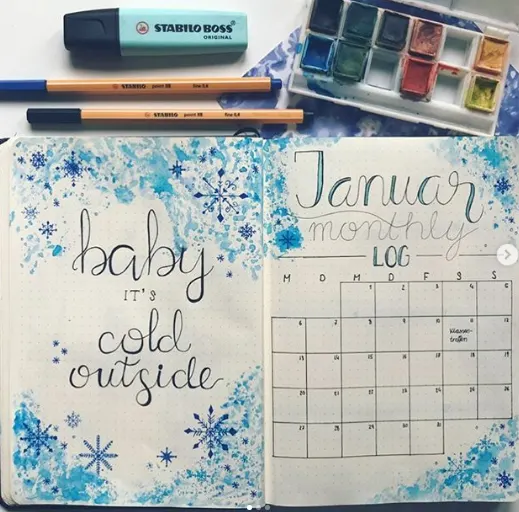 STABILO BOSS
ORIGINAL
STABILO point 88 fine 0,4
STABILO point 88 fine 0,4
baby
IT'S
cold
outside
Januar
monthly
LOG
M D M D F S S
1 2 3 4 5
6 7 8 9 10 11 12
klassen-
treffen
13 14 15 16 17 18 19
20 21 22 23 24 25 26
27 28 29 30 31